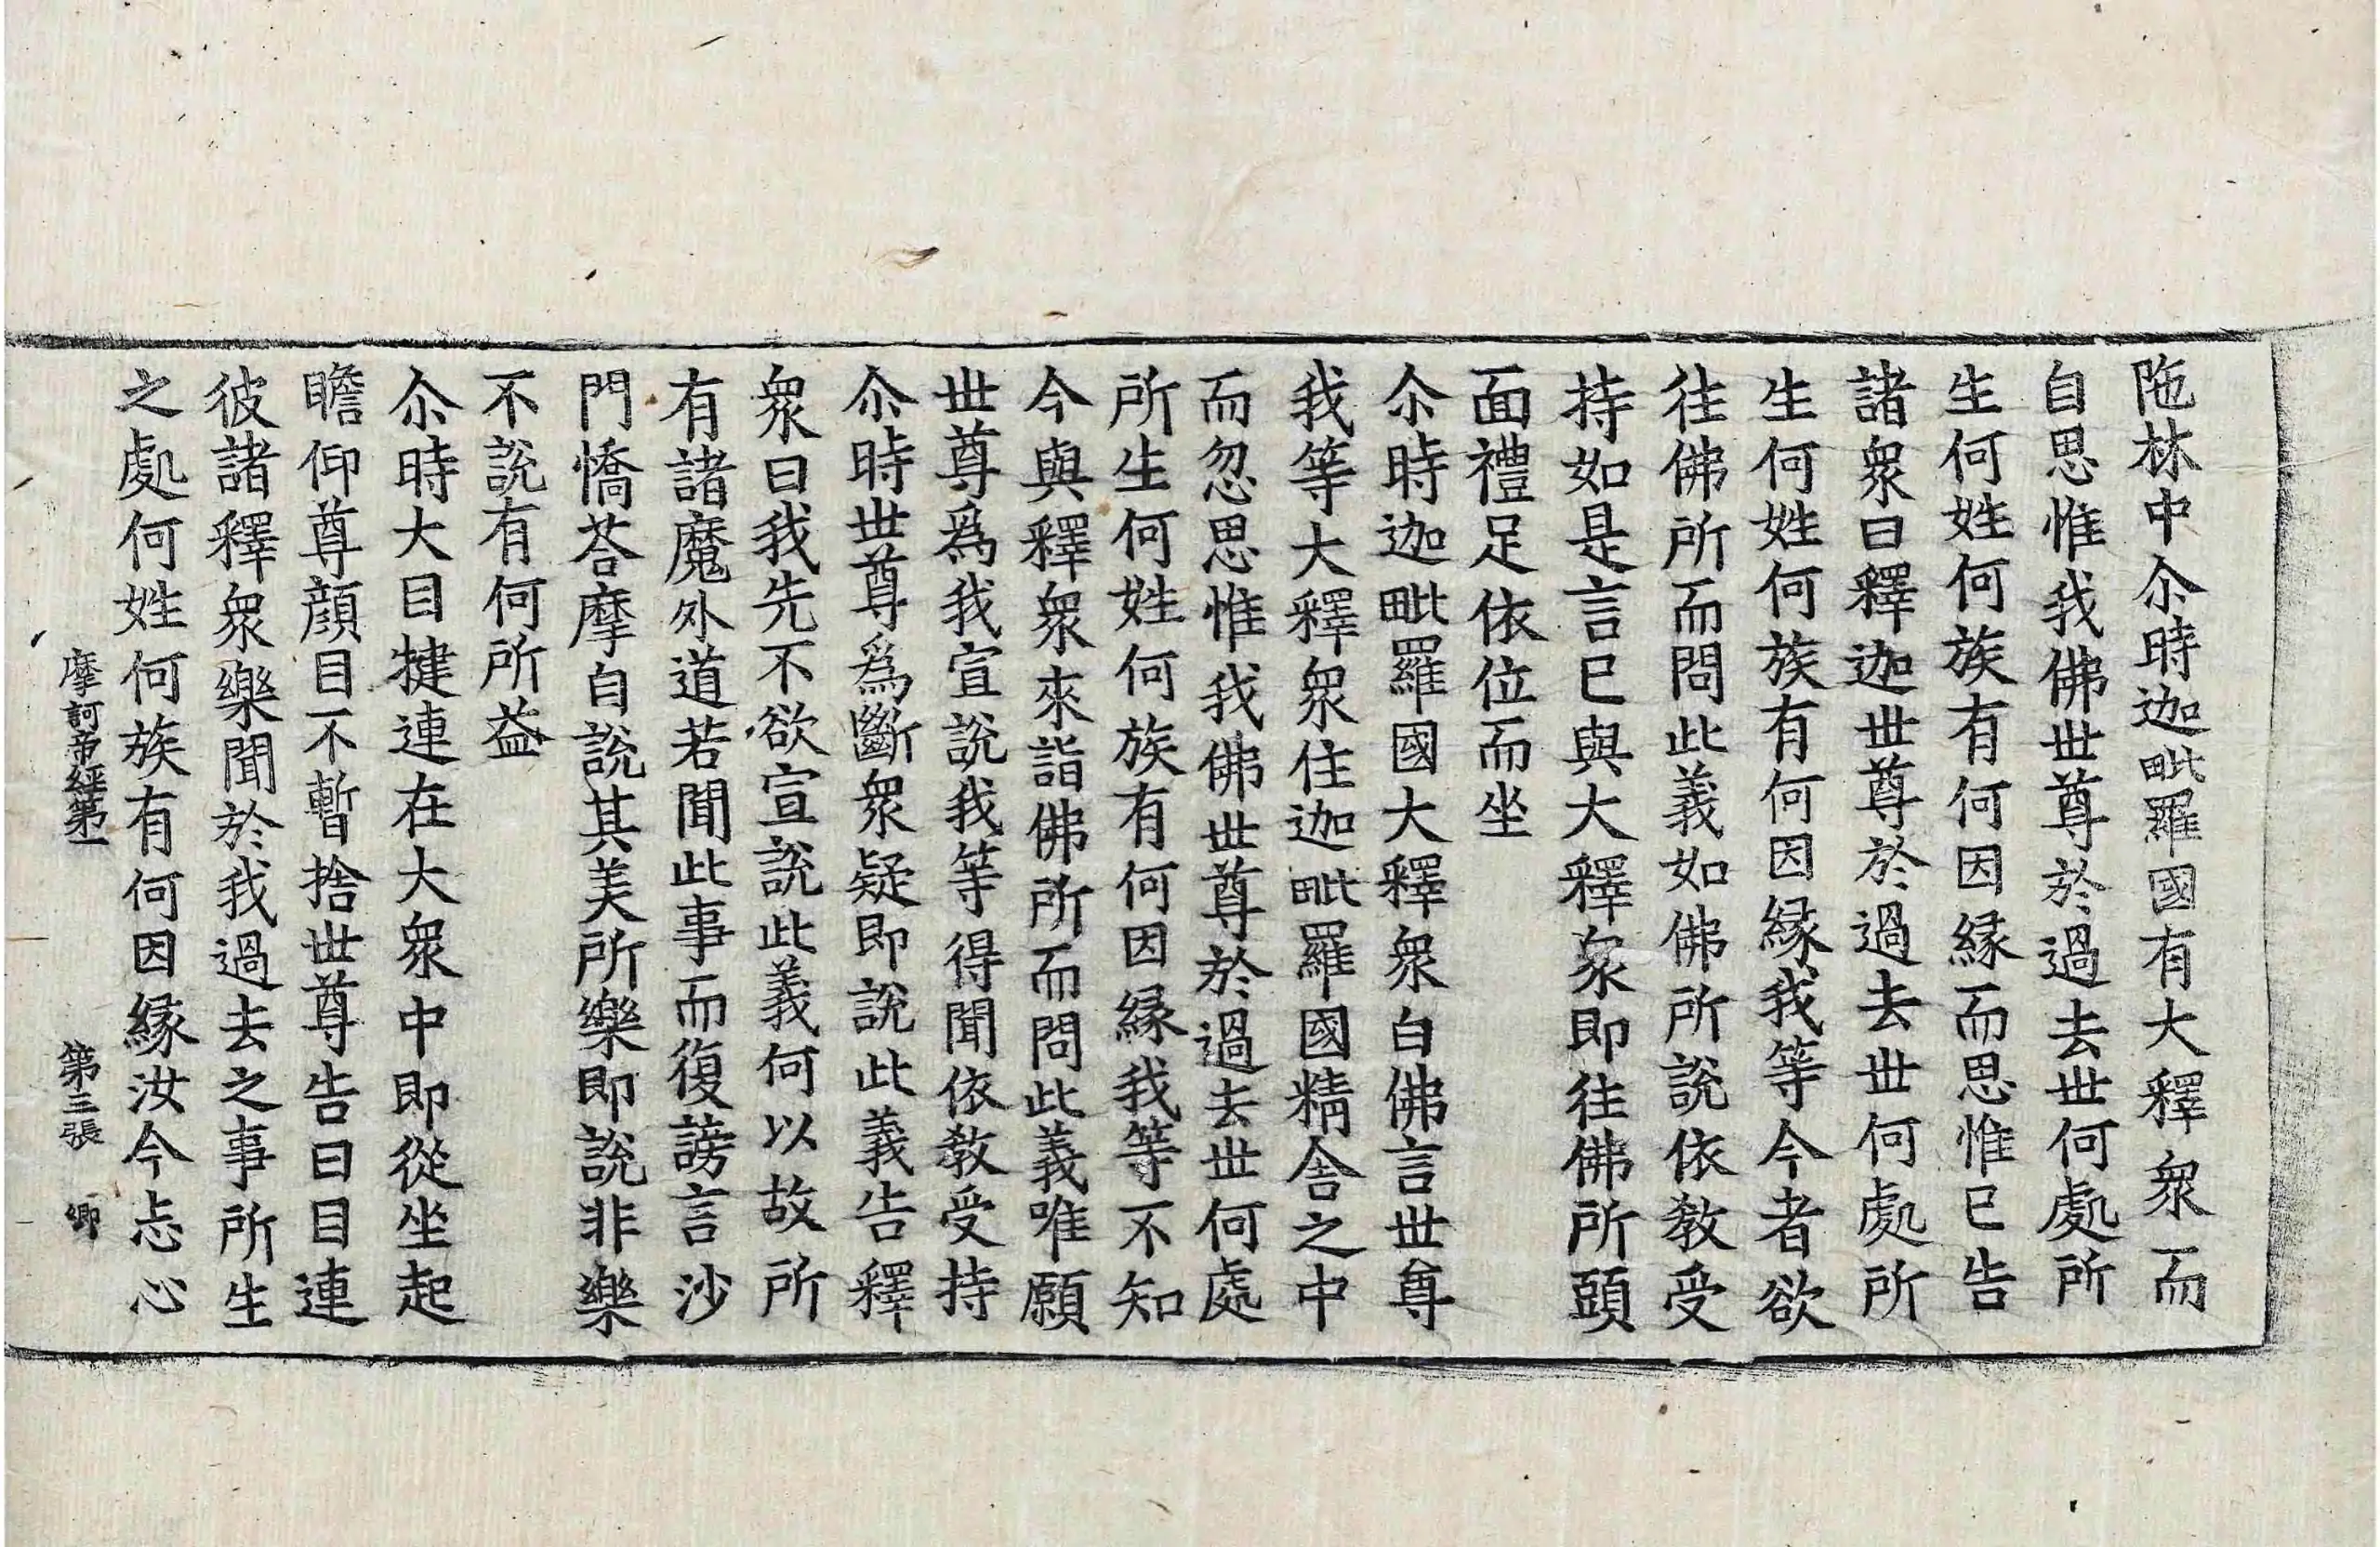 陁林中尒時迦毗羅國有大釋衆而
自思惟我佛世尊於過去世何處所
生何姓何族有何因縁而思惟已告
諸衆曰釋迦世尊於過去世何處所
生何姓何族有何因縁我等今者欲
往佛所而問此義如佛所說依教受
持如是言已與大釋衆即往佛所頭
面禮足依位而坐
尒時迦毗羅國大釋衆白佛言世尊
我等大釋衆住迦毗羅國精舎之中
而忽思惟我佛世尊於過去世何處
所生何姓何族有何因縁我等不知
今與釋衆來詣佛所而問此義唯願
世尊爲我宣說我等得聞依教受持
尒時世尊爲斷衆疑即說此義告釋
衆曰我先不欲宣說此義何以故所
有諸魔外道若聞此事而復謗言沙
門憍荅摩自說其美所樂即說非樂
不說有何所益
尒時大目揵連在大衆中即從坐起
瞻仰尊顔目不暫捨世尊告曰目連
彼諸釋衆樂聞於我過去之事所生
之處何姓何族有何因縁汝今忘心
摩訶帝經第一 第三張 卿